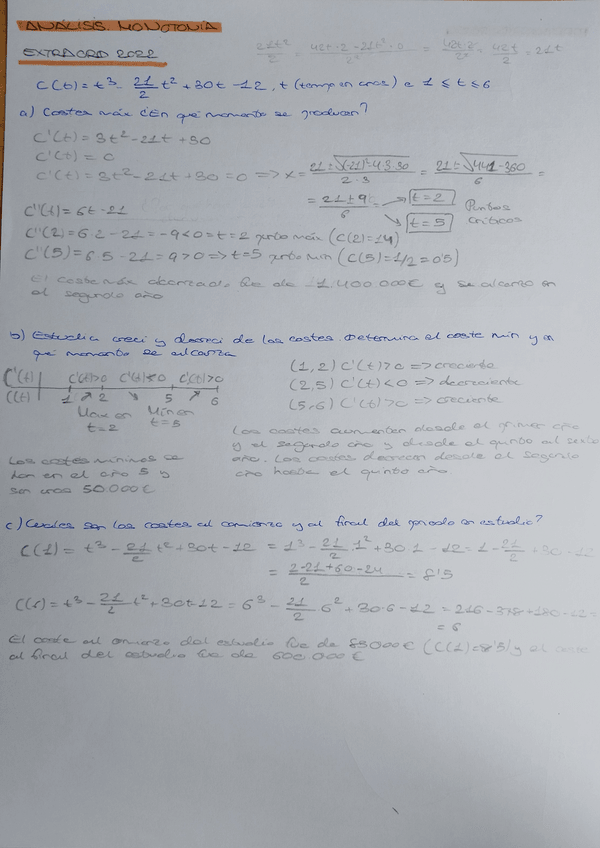 ANÁLISIS. MONOTONÍA
EXTRAORD 2022
21t²/2 = 42t·2 - 21t²·0/2² = 42t·2/2² = 42t/2 = 21t
C(t) = t³ - 21/2 t² + 30t - 12, t (tiempo en años) e 1 ≤ t ≤ 6
a) Costes máx ¿En qué momento se producen?
C'(t) = 3t² - 21t + 30
C'(t) = 0
C'(t) = 3t² - 21t + 30 = 0 => x = 21 ± √(-21)²-4·3·30/2·3 = 21 ± √441-360/6 =
= 21 ± 9/6 = t=2
t=5
Puntos críticos
C''(t) = 6t - 21
C''(2) = 6·2 - 21 = -9 < 0 = t = 2 punto máx (C(2) = 14)
C''(5) = 6·5 - 21 = 9 > 0 => t = 5 punto mín (C(5) = 1/2 = 0'5)
El coste máx alcanzado fue de 1.400.000€ y se alcanzó en
el segundo año
b) Estudia creci y decreci de los costes. Determina el coste mín y en
qué momento se alcanza
C'(t) | C'(t)>0 C'(t)<0 C'(t)>0
C(t) | 1 ↗ 2 ↘ 5 ↗ 6
Max en t=2
Mín en t=5
(1,2) C'(t) > 0 => creciente
(2,5) C'(t) < 0 => decreciente
(5,6) C'(t) > 0 => creciente
Los costes aumentan desde el primer año
y el segundo año y desde el quinto al sexto
año. Los costes decrecen desde el segundo
año hasta el quinto año.
Los costes mínimos se
dan en el año 5 y
son unos 50.000€
c) Cuáles son los costes al comienzo y al final del periodo en estudio?
C(1) = t³ - 21/2 t² + 30t - 12 = 1³ - 21/2 · 1² + 30·1 - 12 = 1 - 21/2 + 30 - 12
= 2-21+60-24/2 = 8'5
C(6) = t³ - 21/2 t² + 30t - 12 = 6³ - 21/2 6² + 30·6 - 12 = 216 - 378 + 180 - 12 =
= 6
El coste al comienzo del estudio fue de 85000€ (C(1)=8'5) y el
al final del estudio fue de 600.000€